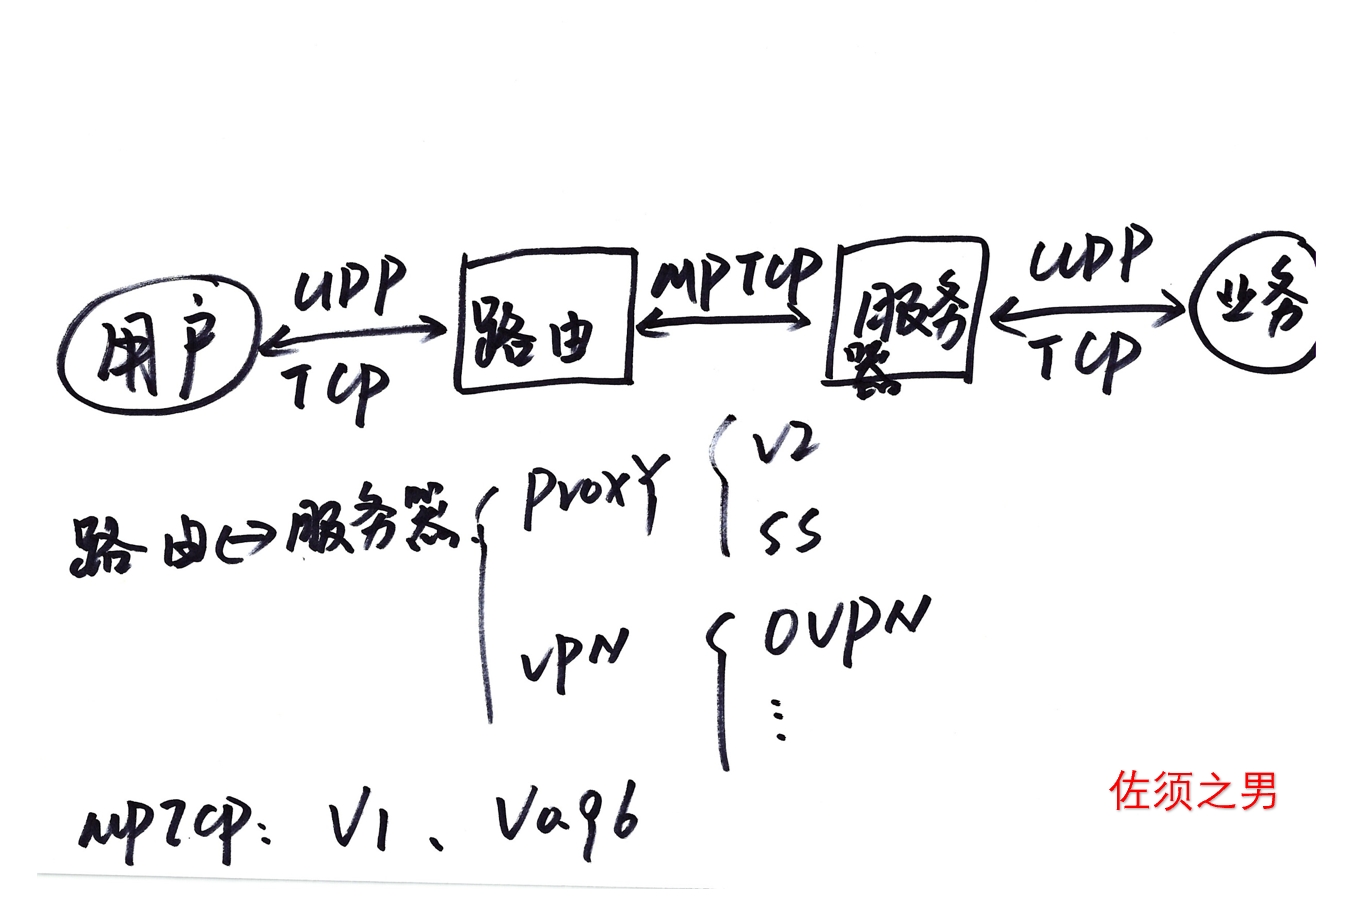 UDP
MPTCP
UDP
用户
路由
服务
器
业务
TCP
TCP
路由<->服务器:
Proxy
V2
SS
VPN
OVPN
⋮
MPTCP: V1、V0.96
佐须之男